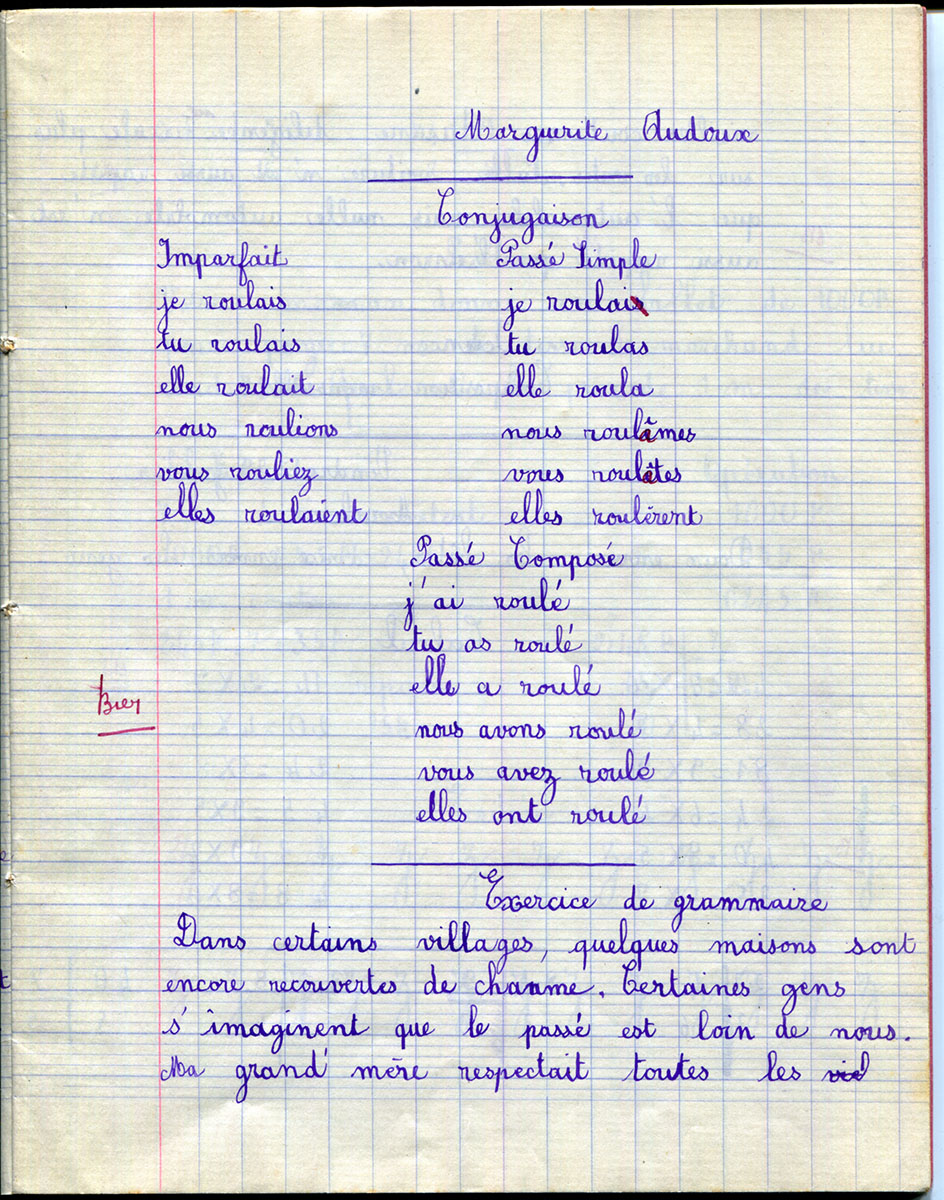 Marguerite Audoux
Conjugaison
Imparfait Passé Simple
je roulais je roulais
tu roulais tu roulas
elle roulait elle roula
nous roulions nous roulâmes
vous rouliez vous roulâtes
elles roulaient elles roulèrent
Passé Composé
j'ai roulé
tu as roulé
elle a roulé
Bien
nous avons roulé
vous avez roulé
elles ont roulé
Exercice de grammaire
Dans certains villages, quelques maisons sont
encore recouvertes de chaume. Certaines gens
s'imaginent que le passé est loin de nous.
Ma grand'mère respectait toutes les